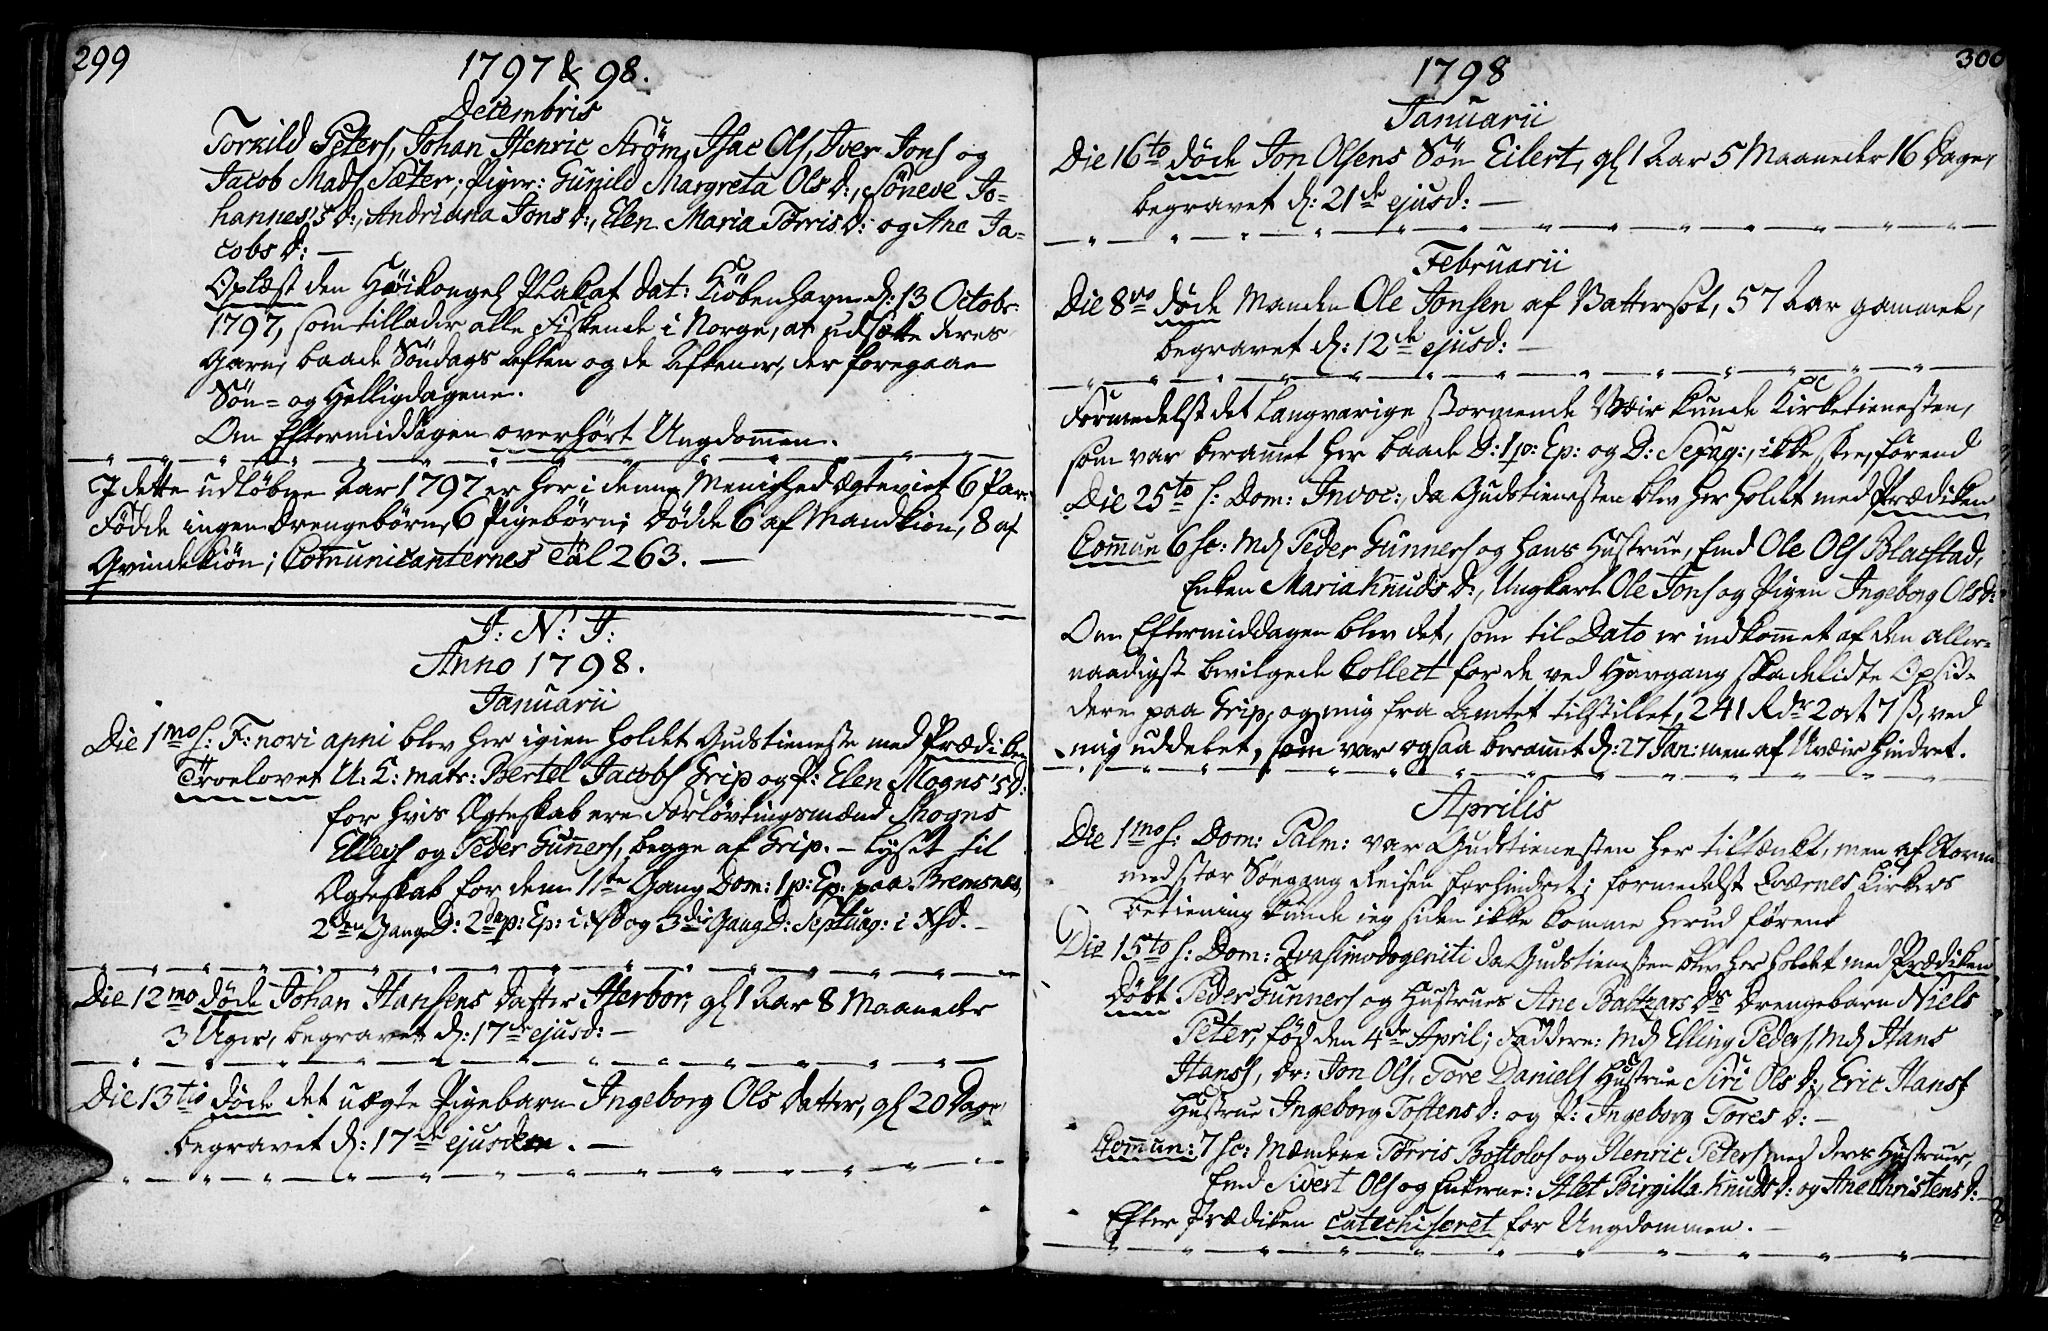 299
1797 & 98.
Decembris
Torkild Peters, Johan Henric Strøm, Isac Ols, Iver Jons og
Jacob Mads Sæter; Piger: Gunild Margreta Ols D:, Søneve Jo-
hannes's D:, Andriana Jons D:, Elen Maria Torris D: og Ane Ja-
cobs D: —
Oplæst den Høikongel Plakat dat: Kiøbenhagn d: 13 Octobr:
1797, som tillader alle Fiskende i Norge, at udsætte deres
Garn, baade Søndags Aften og de Aftener, der foregaae
Søn- og Helligdagene.
Om Eftermiddagen overhørt Ungdommen.
I dette udløbne Aar 1797 er her i denne Menighed Ægteviet 6 Par.
Fødde ingen Drengebørn, 6 Pigebørn; Dødde 6 af Mandkiøn, 8 af
Qvindekiøn; Comunicanternes Tal 263. —
J: N: J:
Anno 1798.
Januarii
Die 1mo s: F: novi anni blev her igien holdet Gudstieneste med Prædiken
Troelovet U: K: matr: Bertel Jacobs Grip og P: Elen Mogns's D:
for hvis Ægteskab ere Forløvtingsmænd Mogns
Ellevs og Peder Gunners, begge af Grip. – Lyset til
Ægteskab for dem 1ste Gang Dom: 1 p: Ep: paa Bremsnes,
2den Gang D: 2da p: Ep: i Xsd og 3die Gang D: Septuag: i Xsd. –
Die 12mo døde Johan Hansens Datter Herbor, gl 1 Aar 8 Maaneder
3 Uger, begravet d: 17de ejusd: –
Die 13tio døde det uægte Pigebarn Ingeborg Ols Datter, gl 20 Dage,
begravet d: 17de ejusdem. —
300
1798
Januarii
Die 16to døde Jon Olsens Søn Eilert, gl 1 Aar 5 Maaneder 16 Dage,
begravet d: 21de ejusd: —
Februarii
Die 8vo døde Manden Ole Jonsen af Battersøt, 57 Aar gammel,
begravet d: 12de ejusd: —
Formedelst det langvarige stormende Veir kunde Kirketienesten,
som var berammet her baade D: 1 p: Ep: og D: Sexag:, ikke skee, førend
Die 25to s: Dom: Invoc:, da Gudstienesten blev her holdet med Prædiken
Commun 6 sc: Md Peder Gunners og hans Hustrue, Emd Ole Ols Blacstad,
Enken Maria Knuds D:, Ungkarl Ole Jons og Pigen Ingeborg Ols D:
Om Eftermiddagen blev det, som til Dato er indkommet af den aller-
naadigst bevilgede Collect for de ved Havgang skadelidte Opsid-
dere paa Grip, og mig fra Amtet tilstillet, 241 Rdr 2 ort 7 ß, ved
mig uddelet, som var ogsaa berammet d: 27 Jan: men af Uveir hindret.
Aprilis
Die 1mo s: Dom: Palm: var Gudstienesten her tiltænkt, men af Storm
med stor Søegang Reisen forhindret; formedelst Qværnes Kirkers
Betiening kunde jeg siden ikke komme herud førend
Die 15to s: Dom: Qvasimodogeniti da Gudstienesten blev her holdet med Prædiken
Døbt Peder Gunners og Hustrues Ane Baltzars Ds Drengebarn Niels
Peter, fød den 4de April; Faddere: Md Elling Peders, Md Hans
Hanss, dr: Jon Ols, Tore Daniels Hustrue Siri Ols D:, Eric Hanss
Hustrue Ingeborg Tostens D: og P: Ingeborg Tores D: —
Commun: 7 sc: Mændene Torris Bottolvs og Henric Peters med deres Hustruer,
Emd Sivert Ols og Enkerne: Alet Birgitta Knuds D: og Ane Christens D: —
Efter Prædiken catechiseret for Ungdommen. —